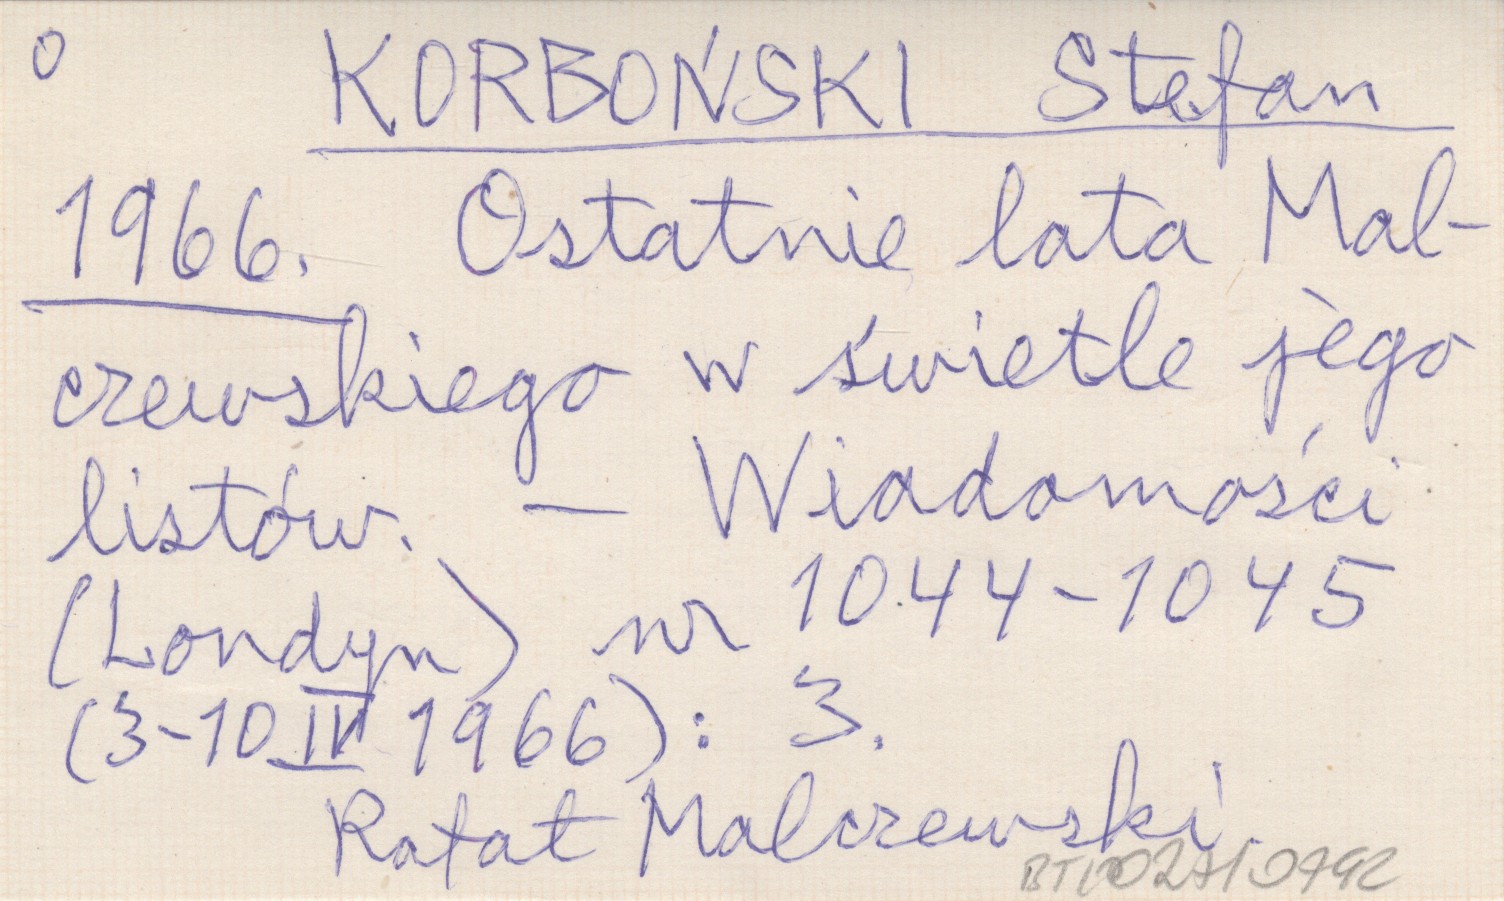 o KORBOŃSKI Stefan
1966. Ostatnie lata Mal-
czewskiego w świetle jego
listów. — Wiadomości
(Londyn) nr 1044-1045
(3-10 IV 1966): 3.
Rafał Malczewski.